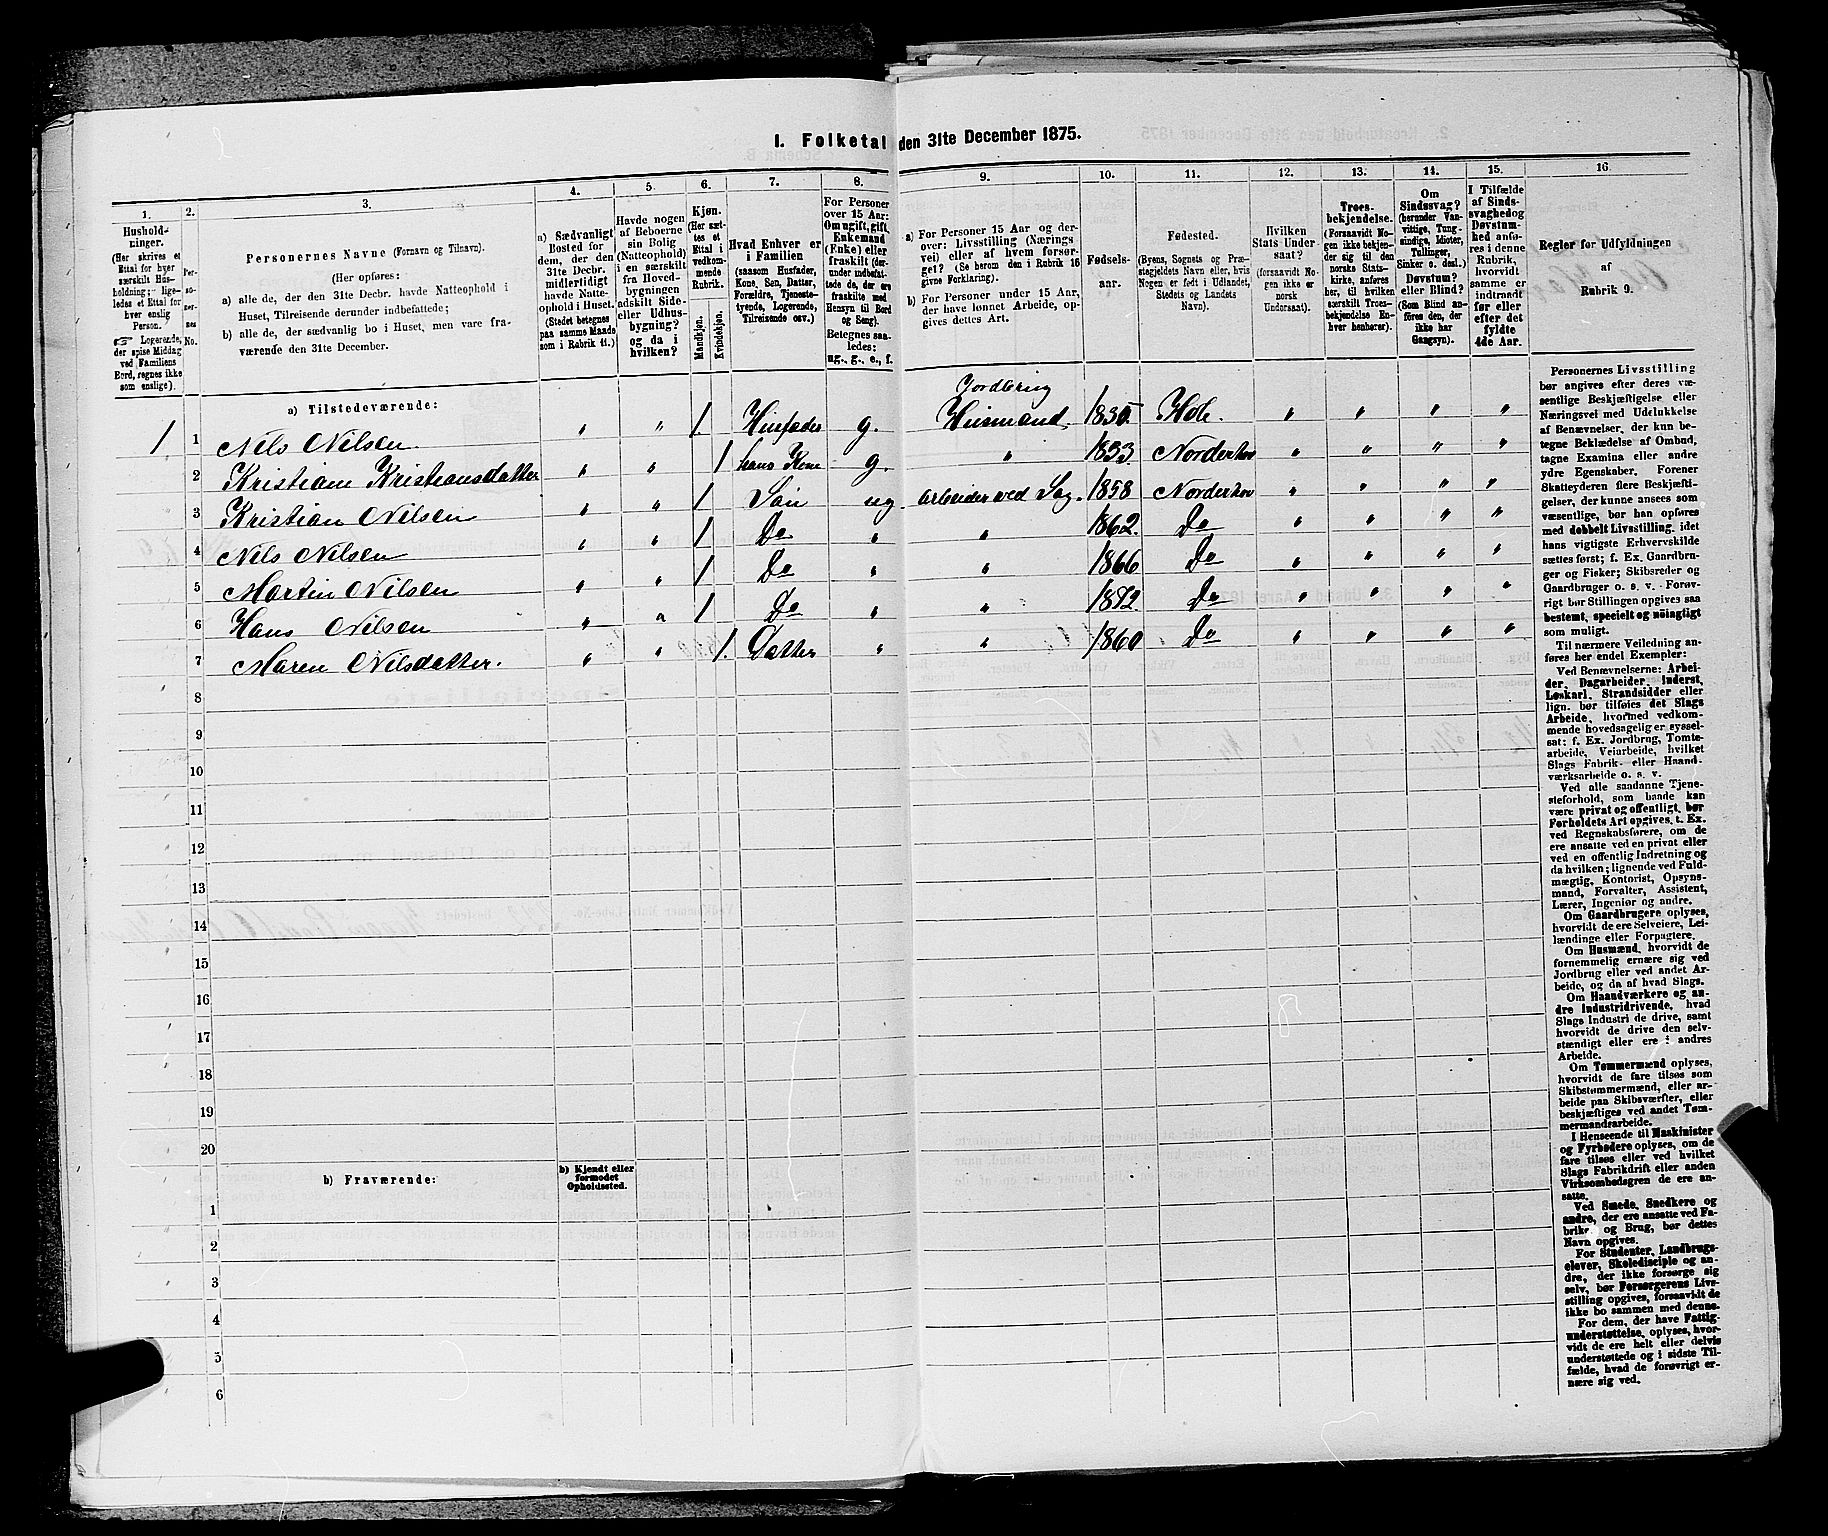 I. Folketal den 31te December 1875.
1.
2.
3.
4.
5.
6.
7.
8.
9.
10.
11.
12.
13.
14.
15.
16.
Hushold-
ninger.
(Her skrives et
Ettal for hver
særskilt Hus-
holdning; lige-
ledes et Ettal for
hver enslig
Person.
☞ Logerende,
der spise Middag
ved Familiens
Bord, regnes ikke
som enslige).
Per-
so-
ner-
nes
No.
Personernes Navne (Fornavn og Tilnavn).
(Her opføres:
a) alle de, der den 31te Decbr. havde Natteophold i
Huset, Tilreisende derunder indbefattede;
b) alle de, der sædvanlig bo i Huset, men vare fra-
værende den 31te December.
a) Sædvanligt
Bosted for
dem, der den
31te Decbr.
midlertidigt
havde Natte-
ophold i Huset.
(Stedet betegnes
paa samme Maade
som i Rubrik 11.)
Havde nogen
af Beboerne
sin Bolig
(Natteophold)
i en særskilt
fra Hoved-
bygningen
adskilt Side-
eller Udhus-
bygning?
og da i
hvilken?
Kjøn.
(Her sæt-
tes et
Ettal i
vedkom-
mende
Rubrik.
Mandkjøn.
Kvindekjøn.
Hvad Enhver er
i Familien
(saasom Husfader,
Kone, Søn, Datter,
Forældre, Tjeneste-
tyende, Logerende,
Tilreisende osv.)
For Personer
over 15 Aar:
Om ugift, gift,
Enkemand
(Enke) eller
fraskilt (der-
under indbefat-
tede de, der ere
fraskilte med
Hensyn til Bord
og Seng).
Betegnes saa-
ledes:
ug., g., e., f.
a) For Personer 15 Aar og der-
over: Livsstilling (Nærings
vei) eller af hvem forsør-
get? (Se herom den i Rubrik 16
givne Forklaring).
b) For Personer under 15 Aar,
der have lønnet Arbeide, op-
gives dettes Art.
Fødsels-
aar.
Fødested.
(Byens, Sognets og Præ-
stegjeldets Navn eller, hvis
Nogen er født i Udlandet,
Stedets og Landets
Navn).
Hvilken
Stats Under-
saat?
(forsaavidt No-
gen ikke er
norsk
Undersaat).
Troes-
bekjendelse.
(Forsaavidt No-
gen ikke bekjen-
der sig til den
norske Stats-
kirke, anføres
her, til hvilken
særskilt Troes-
bekjendelse En-
hver henhører).
Om
Sindssvag?
(herunder Van-
vittige, Tung-
sindige, Idioter,
Tullinger,
Sinker o. desl.)
Døvstum?
eller Blind?
(Som Blind an-
føres den, der
ikke har
Gangsyn).
I Tilfælde
af Sinds-
svaghed og
Døvstum-
hed anfø-
res i denne
Rubrik,
hvorvidt
samme er
indtraadt
før eller
efter det
fyldte
4de Aar.
Regler for Udfyldningen
af
Rubrik 9.
a) Tilstedeværende:
Jordbrug
1 1 Nils Nilsen " " 1. Husfader g. Husmand 1830. Hole. " " " "
2 Kristiane Kristiansdatter " " 1 hans Kone g. " 1833. Norderhov " " " "
3 Kristian Nilsen " " 1 Søn ug. arbeider ved Sag. 1858 Norderhov " " " "
4 Nils Nilsen " " 1 Do " " 1862. Do " " " "
5 Martin Nilsen " " 1 Do " " 1866 Do " " " "
6 Hans Nilsen " " 1 Do " " 1872. Do " " " "
7 Maren Nilsdatter. " " 1. Datter " " 1860 Do " " " "
8
9
10
11
12
13
14
15
16
17
18
19
20
b) Fraværende:
b) Kjendt eller
formodet
Opholdssted.
1
2
3
4
5
6
Personernes Livsstilling
bør angives efter deres væ-
sentlige Beskjæftigelse eller
Næringsvei med Udelukkelse
af Benævnelser, der kun be-
tegne Beklædelse af Ombud,
tagne Examina eller andre
ydre Egenskaber. Forener
Skatteyderen flere Beskjæfti-
gelser, der kunne ansees som
væsentlige, bør han opføres
med dobbelt Livsstilling, idet
hans vigtigste Erhvervskilde
sættes først; f. Ex. Gaardbru-
ger og Fisker; Skibsreder og
Gaardbruger o. s. v. Forøv-
rigt bør Stillingen opgives saa
bestemt, specielt og nøiagtigt
som muligt.
Til nærmere Veiledning an-
føres her endel Exempler:
Ved Benævnelserne: Arbei-
der, Dagarbeider, Inderst,
Løskarl, Strandsidder eller
lign. bør tilføies det Slags
Arbeide, hvormed vedkom-
mende hovedsagelig er syssel-
sat; f. Ex. Jordbrug, Tomte-
arbeide, Veiarbeide, hvilket
Slags Fabrik- eller Haand-
værksarbeide o. s. v.
Ved alle saadanne Tjene-
steforhold, som baade kan
være privat og offentligt, bør
Forholdets Art opgives, t. Ex.
ved Regnskabsførere, om de
ere ansatte ved en privat eller
ved en offentlig Indretning og
da hvilken; lignende ved Fuld-
mægtig, Kontorist, Opsyns-
mand, Forvalter, Assistent,
Lærer, Ingeniør og andre.
Om Gaardbrugere oplyses,
hvorvidt de ere Selveiere, Lei-
lændinge eller Forpagtere.
Om Husmænd, hvorvidt de
fornemmelig ernære sig ved
Jordbrug eller ved andet Ar-
beide, og da af hvad Slags.
Om Haandværkere og an-
dre Industridrivende, hvad
Slags Industri de drive, samt
hvorvidt de drive den selv-
stændigt eller ere i andres
Arbeide.
Om Tømmermænd oplyses,
hvorvidt de fare tilsøs som
Skibstømmermænd, eller ar-
beide paa Skibsværfter, eller
beskjæftiges ved andet Tøm-
mermandsarbeide.
I Henseende til Maskinister
og Fyrbødere oplyses, om de
fare tilsøs eller ved hvilket
Slags Fabrikdrift eller anden
Virksomhedsgren de ere an-
satte.
Ved Smede, Snedkere og
andre, der ere ansatte ved Fa-
briker og Brug, bør dettes
Navn opgives.
For Studenter, Landbrugs-
elever, Skoledisciple og an-
dre, der ikke forsørge sig
selv, bør Forsørgerens Livs-
stilling opgives, forsaavidt de
ikke bo sammen med denne.
For dem, der have Fattig-
understøttelse, oplyses, hvor-
vidt de ere helt eller delvis
understøttede og i sidste Til-
fælde, hvad de forøvrigt er-
nære sig ved.